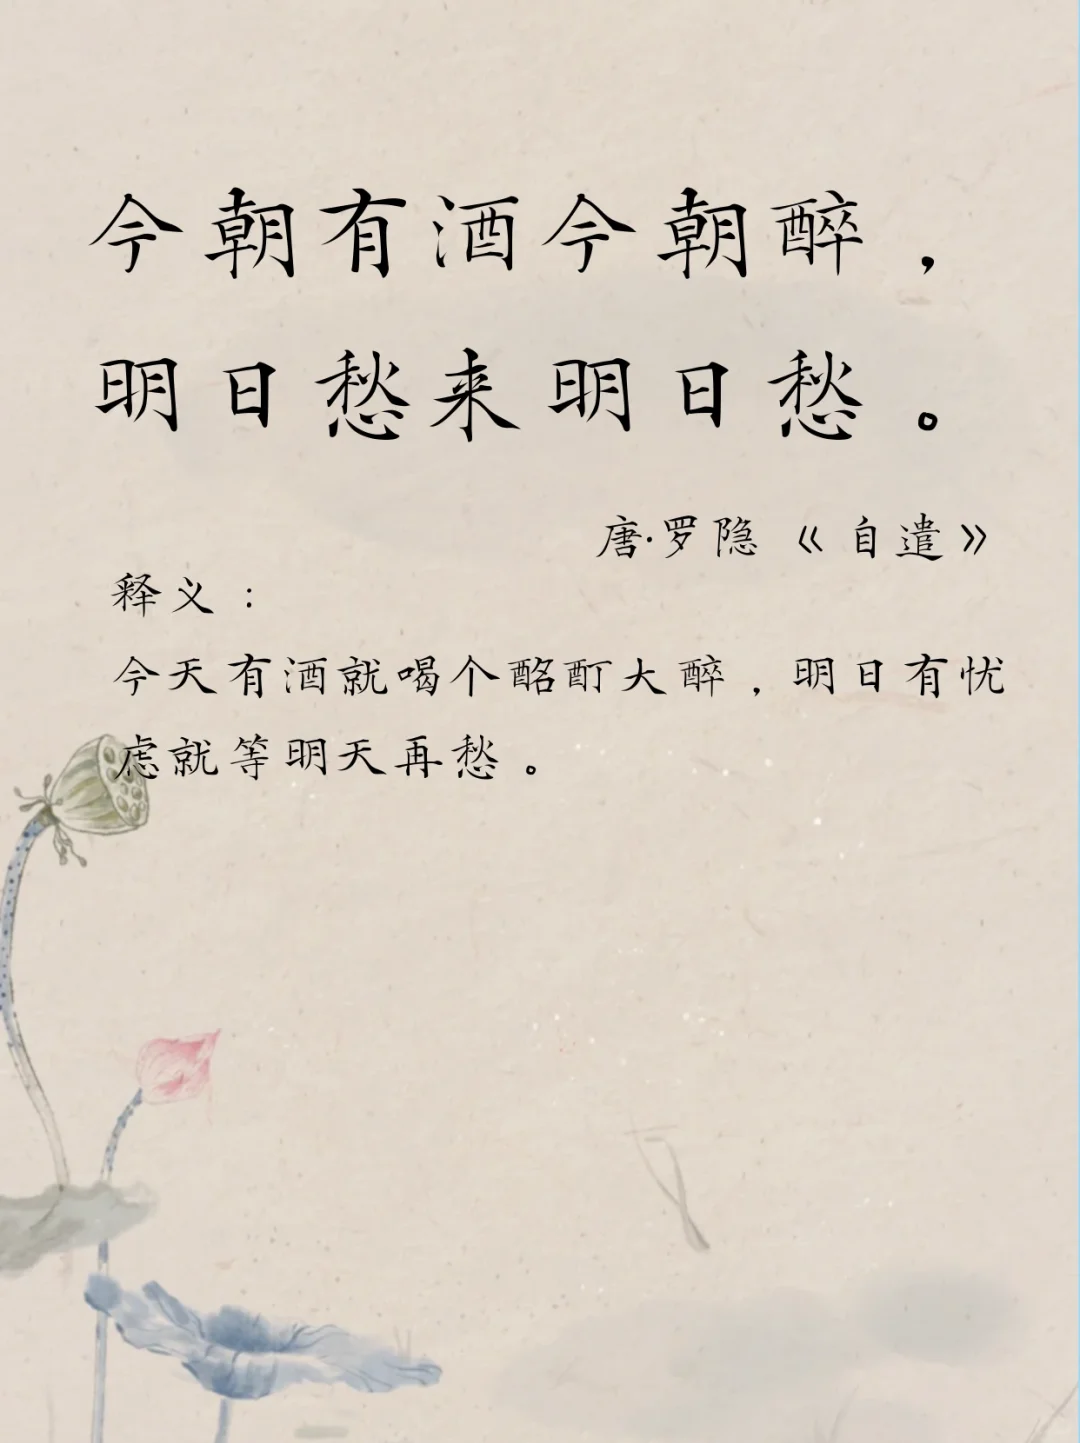 今朝有酒今朝醉，
明日愁来明日愁。
唐·罗隐《自遣》
释义：
今天有酒就喝个酩酊大醉，明日有忧
虑就等明天再愁。